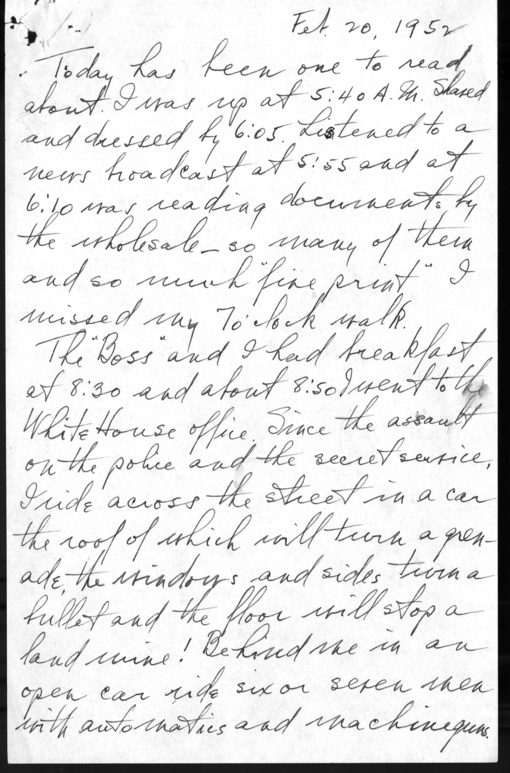 Feb. 20, 1952
Today has been one to read
about. I was up at 5:40 A.M. Shaved
and dressed by 6:05. Listened to a
news broadcast at 5:55 and at
6:10 was reading documents by
the wholesale - so many of them
and so much "fine print" I
missed my 7 o'clock walk.
The "Boss" and I had breakfast
at 8:30 and about 8:50 I went to the
White House office. Since the assault
on the police and the secret service,
I ride across the street in a car
the roof of which will turn a gren-
ade, the windows and sides turn a
bullet and the floor will stop a
land mine! Behind me in an
open car ride six or seven men
with automatics and machineguns.